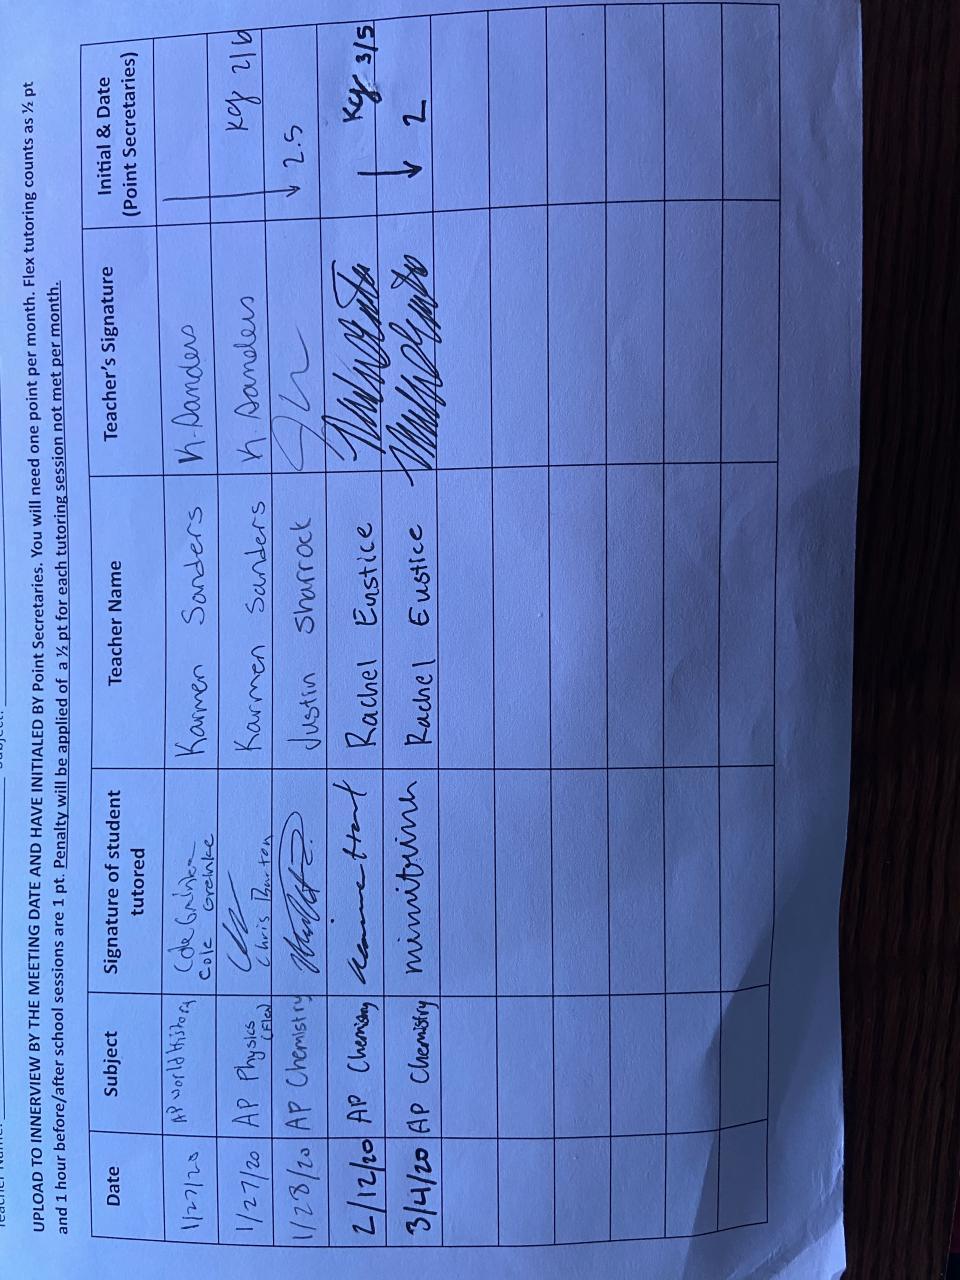 UPLOAD TO INNERVIEW BY THE MEETING DATE AND HAVE INITIALED BY Point Secretaries. You will need one point per month. Flex tutoring counts as ½ pt
and 1 hour before/after school sessions are 1 pt. Penalty will be applied of a ½ pt for each tutoring session not met per month.
Date Subject Signature of student tutored Teacher Name Teacher's Signature Initial & Date (Point Secretaries)
1/27/20 AP World History Cole Greinke Karmen Sanders K. Sanders
1/27/20 AP Physics (Flex) Chris Barton Karmen Sanders K. Sanders kg 2/6
1/28/20 AP Chemistry Justin Sharrock 2.5
2/12/20 AP Chemistry Rachel Eustice kg 3/5
3/4/20 AP Chemistry Rachel Eustice 2